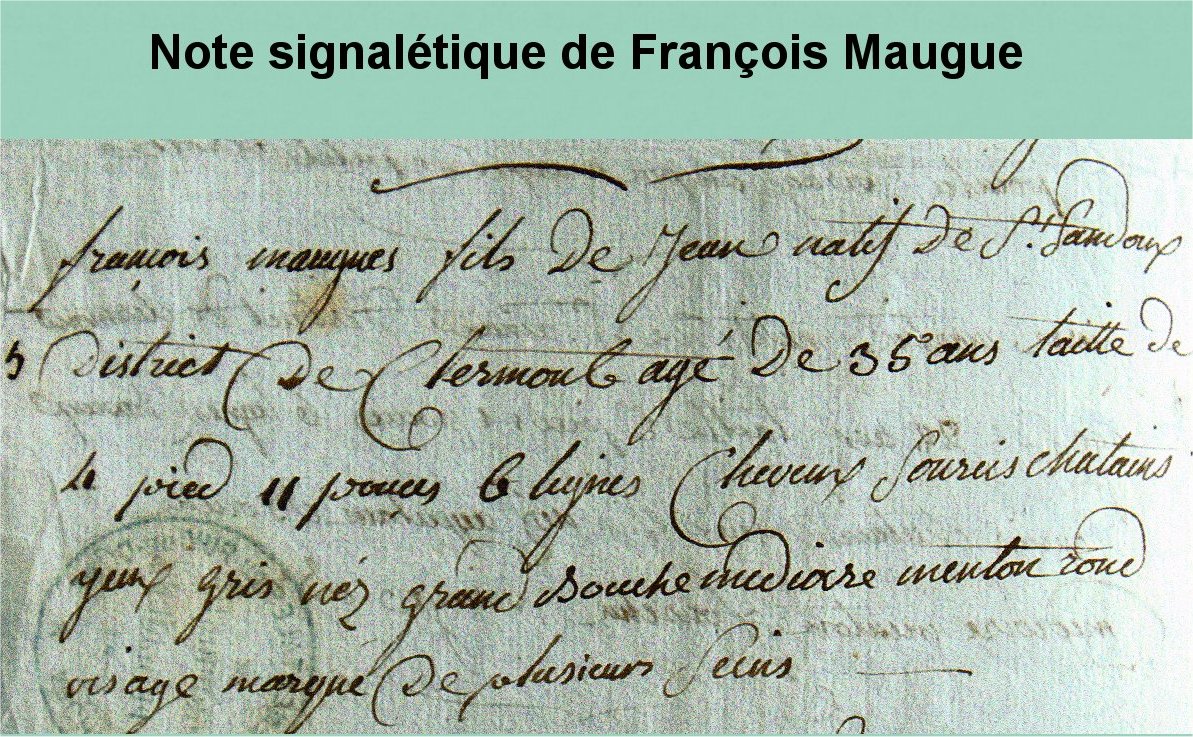 Note signalétique de François Maugue
françois maugues fils de Jean natif de St. Sandoux
District de Clermont agé de 35 ans taille de
4 pied 11 pouces 6 lignes Cheveux Sourcis chatains
yeux gris néz grand bouche mediocre menton rond
visage marqué de plusieurs Seins